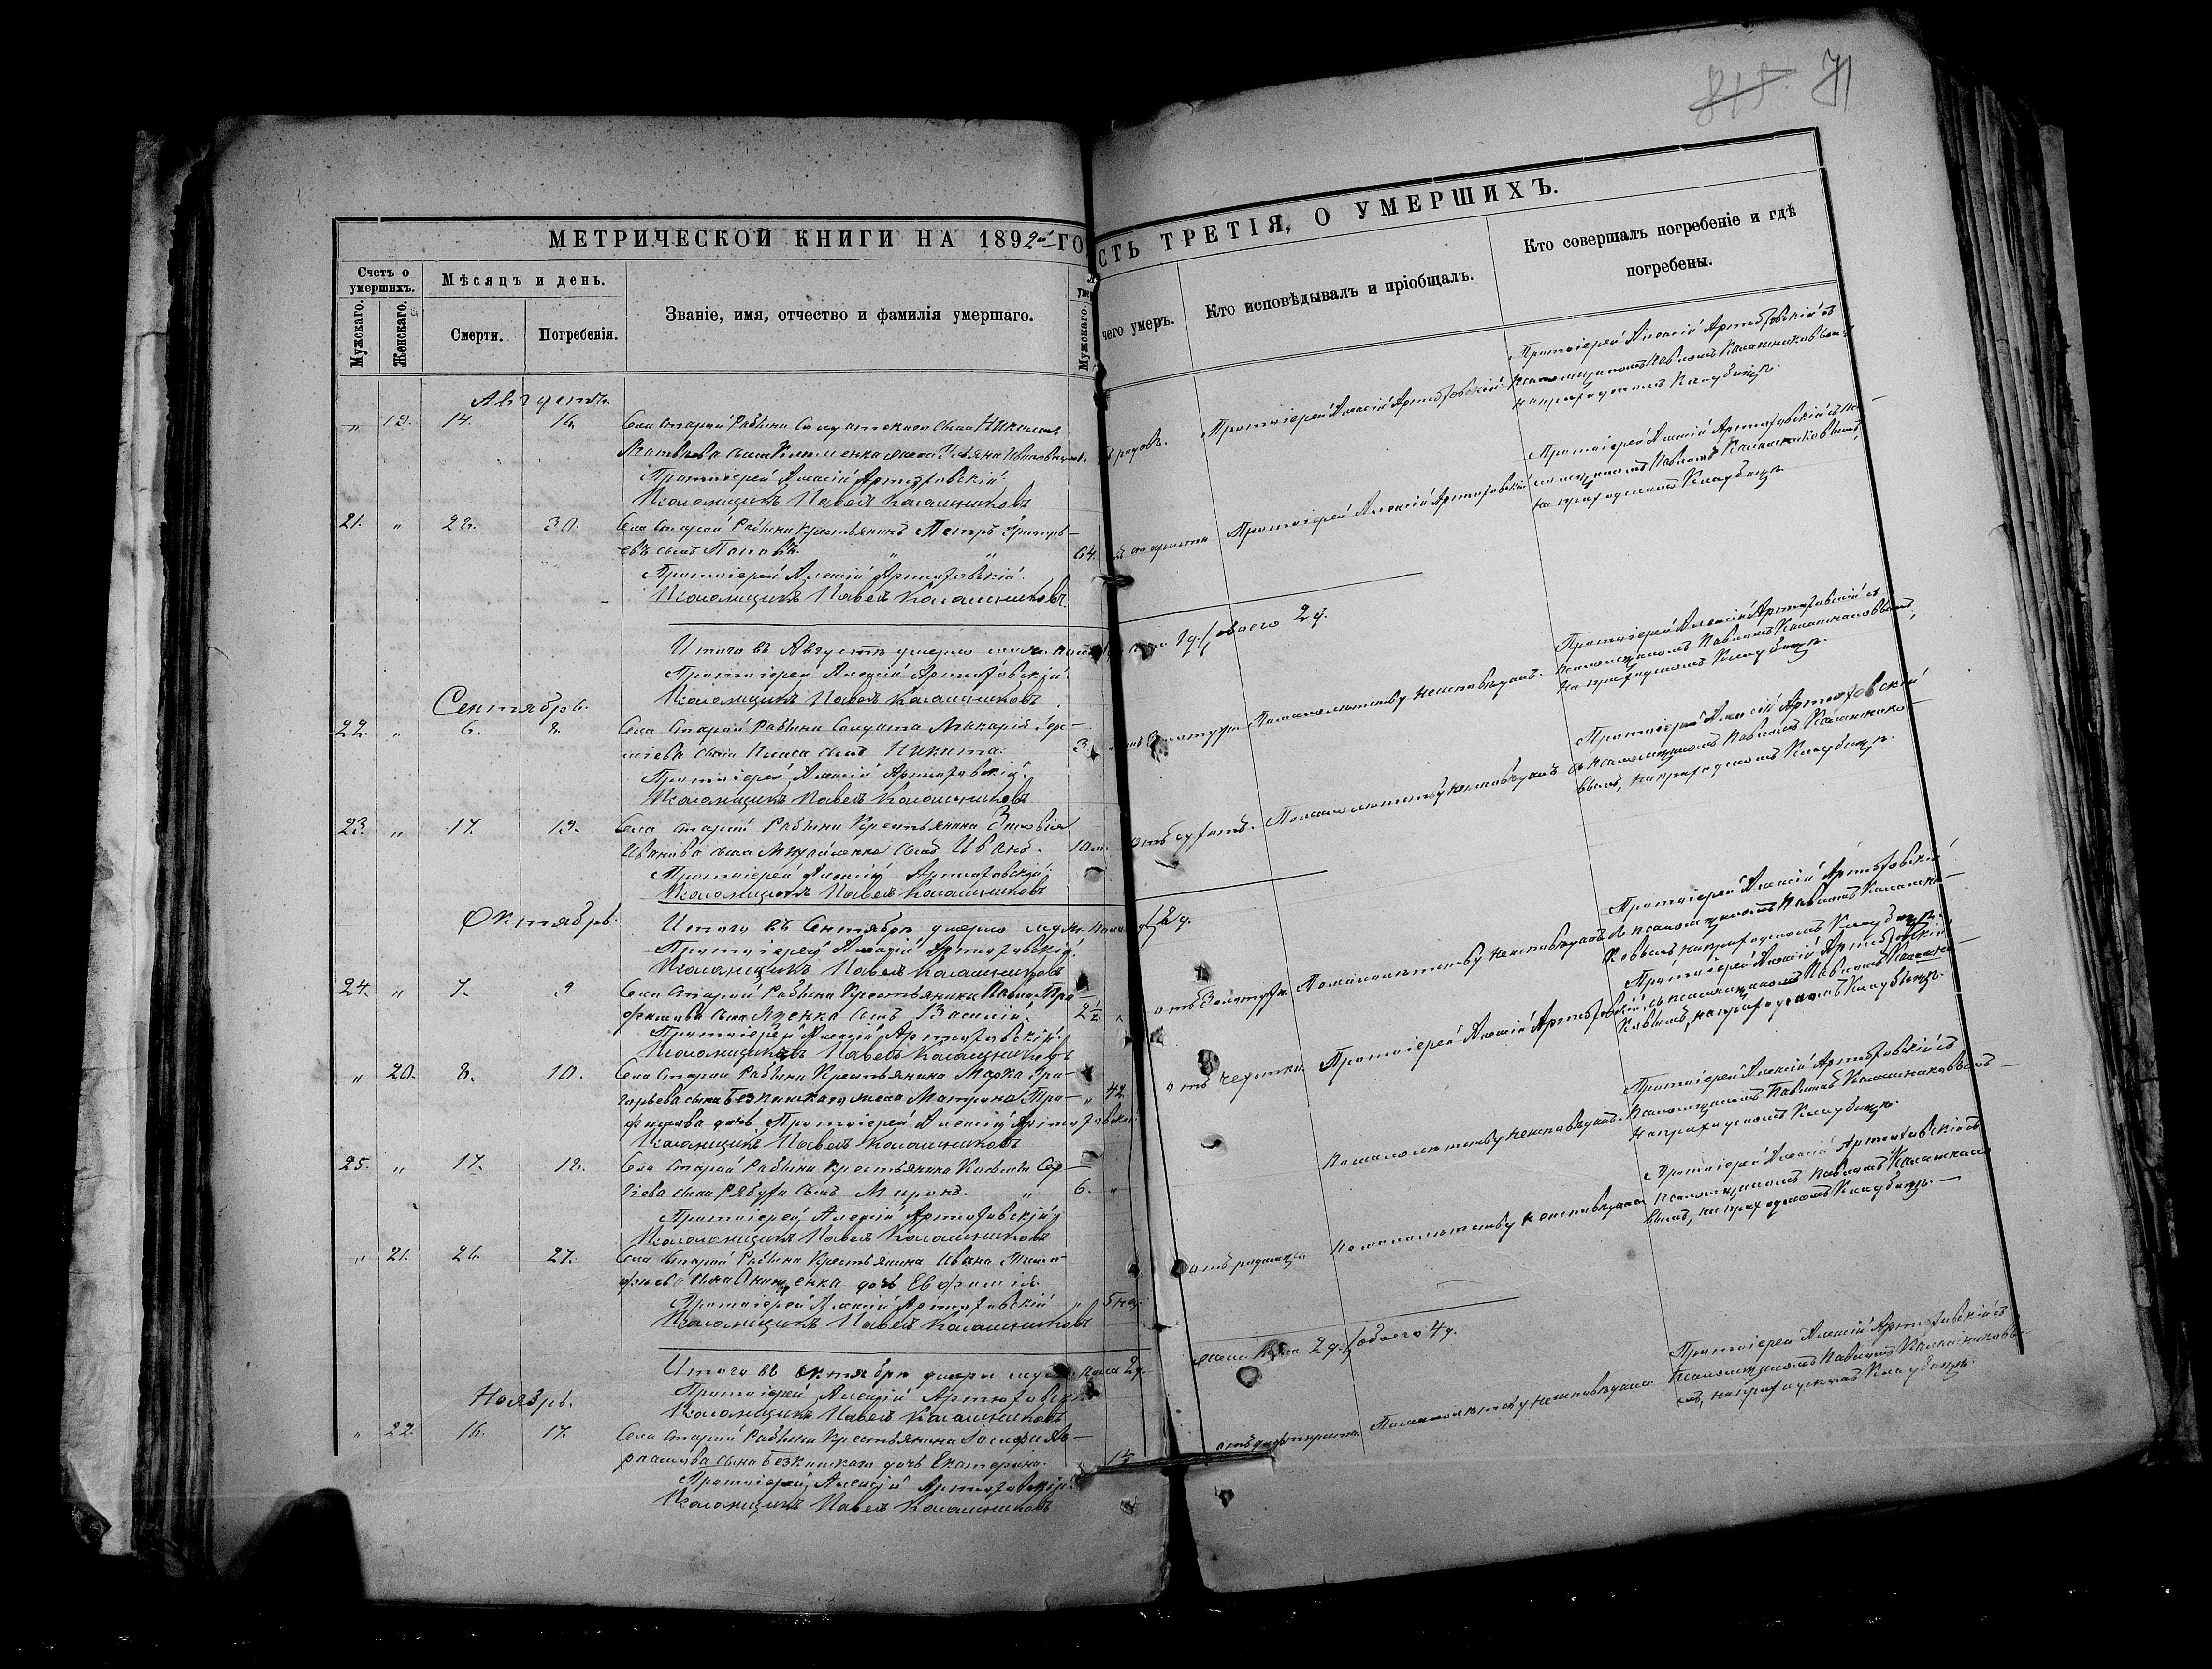 815. 71
МЕТРИЧЕСКОЙ КНИГИ НА 1892й ГО
Счетъ о умершихъ.
Мужскаго.
Женскаго.
Мѣсяцъ и день.
Смерти.
Погребенія.
Званіе, имя, отчество и фамилія умершаго.
Мужскаго.
Августъ.
" 19. 14. 16. Села Старой Рябины Солдатскаго сына Николая
Матвѣева сына жена Ивановна
Протоіерей Алексій Артюховскій.
Псаломщикъ Павелъ Калашниковъ
21. " 28. 30. Села Старой Рябины Крестьянинъ Петръ Григорь-
евъ сынъ Поповъ. 64.
Протоіерей Алексій Артюховскій.
Псаломщикъ Павелъ Калашниковъ.
Итого въ Августѣ умерло
Протоіерей Алексій Артюховскій.
Псаломщикъ Павелъ Калашниковъ
Сентябрь.
22. " 6. 8. Села Старой Рябины Солдата Макарія
сына сынъ Никита. 3
Протоіерей Алексій Артюховскій.
Псаломщикъ Павелъ Калашниковъ
23. " 17. 19. Села Старой Рябины Крестьянина Зиновія
Иванова сына Михайленка сынъ Иванъ. 10
Протоіерей Алексій Артюховскій.
Псаломщикъ Павелъ Калашниковъ
Октябрь.
Итого въ Сентябрѣ умерло
Протоіерей Алексій Артюховскій.
Псаломщикъ Павелъ Калашниковъ
24. " 7. 9 Села Старой Рябины Крестьянина Павла Тро-
фимова сына Яценка сынъ Василій. 2½
Протоіерей Алексій Артюховскій.
Псаломщикъ Павелъ Калашниковъ
" 20. 8. 10. Села Старой Рябины Крестьянина Марка Гри-
горьева сына Безкишкаго жена Матрона Тро- " 42
фимова дочь. Протоіерей Алексій Артюховскій
Псаломщикъ Павелъ Калашниковъ
25. " 17. 18. Села Старой Рябины Крестьянина Космы Сер-
гіева сына Рябухи сынъ Миронъ. " 6. "
Протоіерей Алексій Артюховскій
Псаломщикъ Павелъ Калашниковъ
" 21. 26. 27. Села Старой Рябины Крестьянина Ивана Тимо-
фѣева сына Онищенка дочь Евфимія.
Протоіерей Алексій Артюховскій " 5
Псаломщикъ Павелъ Калашниковъ
Итого въ Октябрѣ умерло пола 2 д.
Ноябрь.
Протоіерей Алексій Артюховскій
Псаломщикъ Павелъ Калашниковъ
" 22. 16. 17. Села Старой Рябины Крестьянина Іосифа Ав-
раамова сына Безкишкаго дочь Екатерина. " 1½
Протоіерей Алексій Артюховскій
Псаломщикъ Павелъ Калашниковъ
СТЬ ТРЕТІЯ, О УМЕРШИХЪ.
чего умеръ.
Кто исповѣдывалъ и пріобщалъ.
Кто совершалъ погребеніе и гдѣ погребены.
родовъ. Протоіерей Алексій Артюховскій
Протоіерей Алексій Артюховскій съ
Псаломщикомъ Павломъ Калашниковымъ
на приходскомъ Кладбищѣ.
старости Протоіерей Алексій Артюховскій
Протоіерей Алексій Артюховскій съ Пса-
ломщикомъ Павломъ Калашниковымъ,
на приходскомъ Кладбищѣ
1 д./обоего 2 д.
золотухи По малолѣтству неисповѣданъ.
Протоіерей Алексій Артюховскій съ
псаломщикомъ Павломъ Калашниковымъ,
на приходскомъ Кладбищѣ.
отъ сухотъ. По малолѣтству неисповѣданъ
Протоіерей Алексій Артюховскій
съ псаломщикомъ Павломъ Калашнико-
вымъ, на приходскомъ Кладбищѣ.
2 д.
отъ Золотухи По малолѣтству неисповѣданъ
Протоіерей Алексій Артюховскій
съ псаломщикомъ Павломъ Калашни-
ковымъ на приходскомъ Кладбищѣ.
отъ чахотки. Протоіерей Алексій Артюховскій
Протоіерей Алексій Артюховскій
съ псаломщикомъ Павломъ Калашни-
ковымъ, на приходскомъ Кладбищѣ.
По малолѣтству неисповѣданъ.
Протоіерей Алексій Артюховскій съ
Псаломщикомъ Павломъ Калашниковымъ
На приходскомъ Кладбищѣ.
отъ родимца По малолѣтству неисповѣдана
Протоіерей Алексій Артюховскій съ
псаломщикомъ Павломъ Калашнико-
вымъ, на приходскомъ Кладбищѣ.
2 д./обоего 4 д.
отъ дифтерита. По малолѣтству неисповѣдана
Протоіерей Алексій Артюховскій съ
Псаломщикомъ Павломъ Калашниковы-
мъ, на приходскомъ Кладбищѣ.